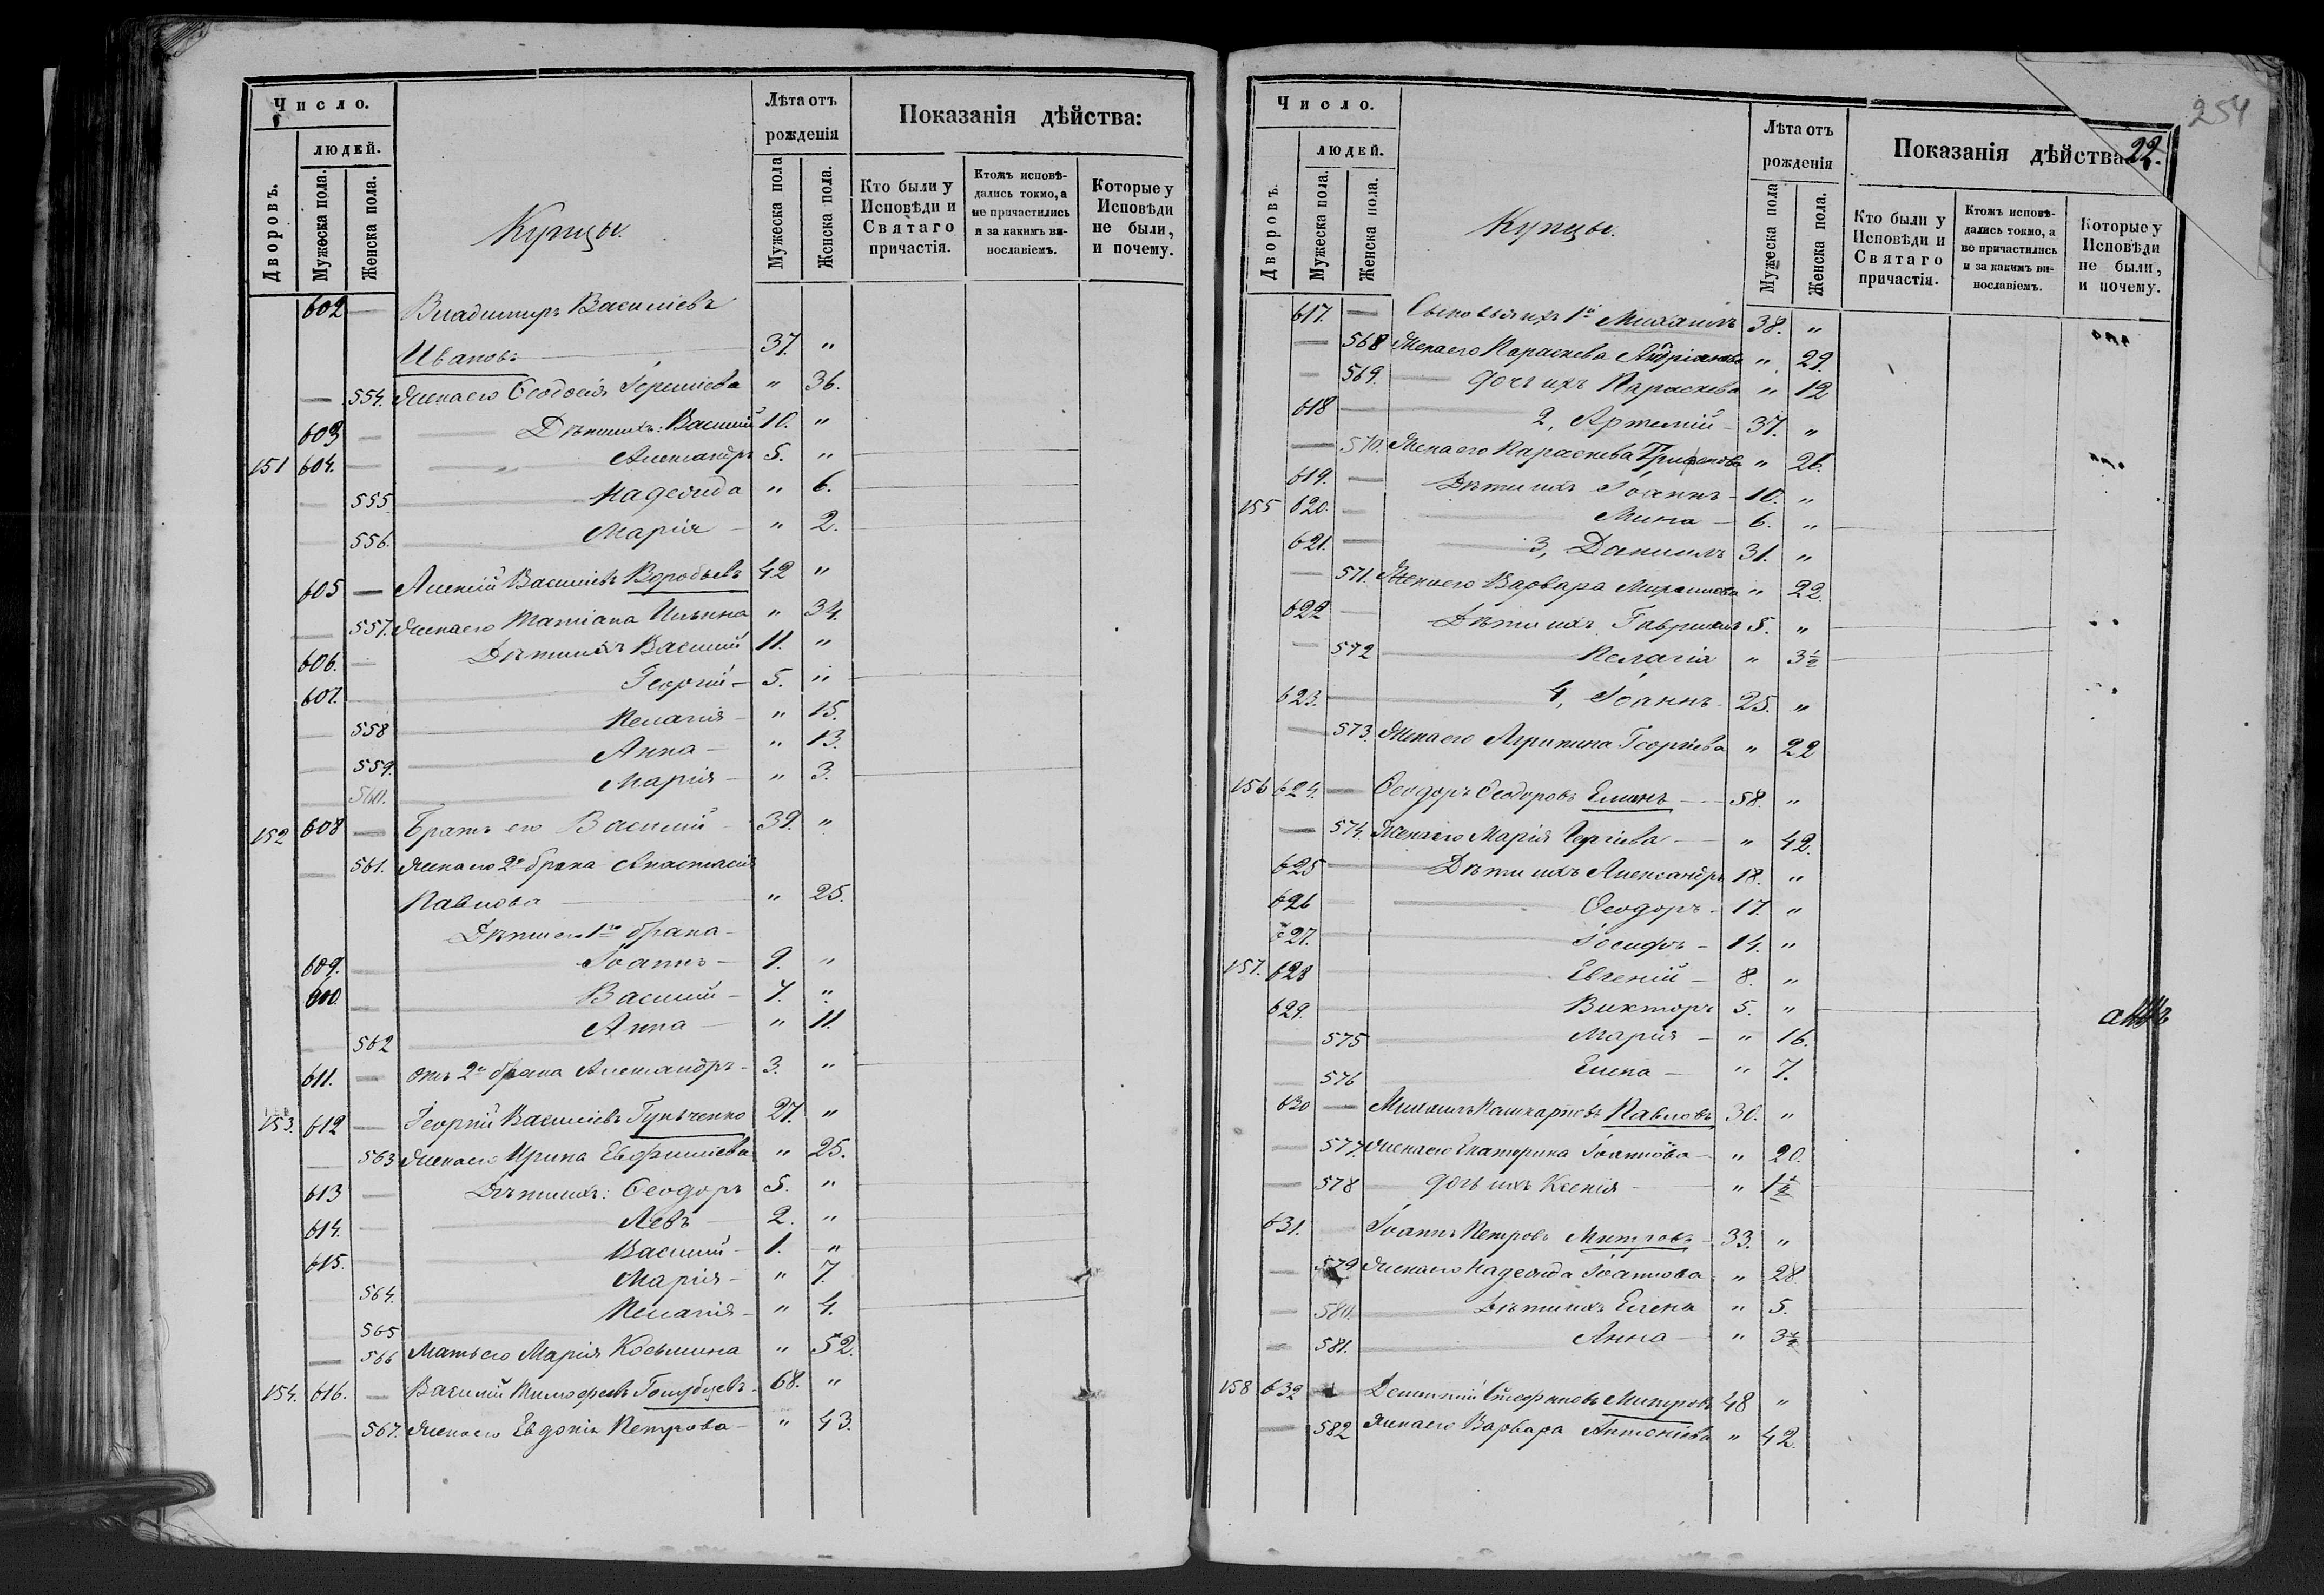 Число.
людей.
Дворовъ.
Мужеска пола.
Женска пола.
Купцы.
Лѣта отъ
рожденія
Мужеска пола
Женска пола.
Показанія дѣйства:
Кто были у
Исповѣди и
Святаго
причастія.
Ктожъ исповѣ-
дались токмо, а
не причастились
и за какимъ ви-
нословіемъ.
Которые у
Исповѣди
не были,
и почему.
602 Владимиръ Васильевъ
Ивановъ 37. "
554. Жена его Ѳеодосія " 36.
603 Дѣти ихъ: Василій 10. "
151 604. Александръ 5. "
555 Надежда " 6.
556. Марія " 2.
605 Алексѣй Васильевъ Воробьевъ 42 "
557. Жена его Татіана Ильина " 34.
606. Дѣти ихъ Василій 11. "
607. Георгій 5. "
558 Пелагія " 15.
559. Анна " 13.
560. Марія " 3.
152 608 Братъ его Василій 39. "
561. Жена его 2го брака Анастасія
Павлова " 25.
Дѣти его 1го брака
609. Іоаннъ 9. "
610. Василій 7. "
562 Анна " 11.
611. Отъ 2го брака Александръ 3. "
153. 612 Георгій Васильевъ 27. "
563 Жена его Ирина Евфиміева " 25.
613 Дѣти ихъ: Ѳеодоръ 5. "
614. Левъ 2. "
615. Василій 1. "
564. Марія " 7.
565 Пелагія " 4.
566 Мать его Марія Косьмина " 52.
154. 616. Василій Тимофеевъ Голубцевъ 68. "
567. Жена его Евдокія Петрова " 43.
254
22.
Число.
людей.
Дворовъ.
Мужеска пола.
Женска пола.
Купцы.
Лѣта отъ
рожденія
Мужеска пола
Женска пола.
Показанія дѣйства
Кто были у
Исповѣди и
Святаго
причастія.
Ктожъ исповѣ-
дались токмо, а
не причастились
и за какимъ ви-
нословіемъ.
Которые у
Исповѣди
не были,
и почему.
617. Сыновья ихъ 1й Михаилъ 38. "
568 Жена его Параскева Андріанова " 29.
569. Дочь ихъ Параскева " 12
618 2, Артемій 37. "
570. Жена его Параскева " 26.
619. Дѣти ихъ Іоаннъ 10. "
155 620. Мина 6. "
621. 3, Даниилъ 31. "
571. Жена его Варвара " 22.
622 Дѣти ихъ Гавриилъ 5. "
572 Пелагія " 3½
623. 4, Іоаннъ 25. "
573. Жена его Агрипина Георгіева " 22
156 624. Ѳеодоръ Ѳеодоровъ 58. "
574. Жена его Марія " 42.
625 Дѣти ихъ Александръ 18. "
626 Ѳеодоръ 17. "
627. Іосифъ 14. "
157. 628 Евгеній 8. "
629. Викторъ 5. "
575 Марія " 16.
576 Елена " 7.
630 Михаилъ Павловъ 30. "
577. Жена его Екатерина Іоаннова " 20.
578 Дочь ихъ Ксенія " 1½
631. Іоаннъ Петровъ Митровъ 33. "
579 Жена его Надежда Іоаннова " 28.
580. Дѣти ихъ Елена " 5.
581. Анна " 3½
158 632 Стефановъ Митровъ 48 "
582 Жена его Варвара Антоніева " 42.